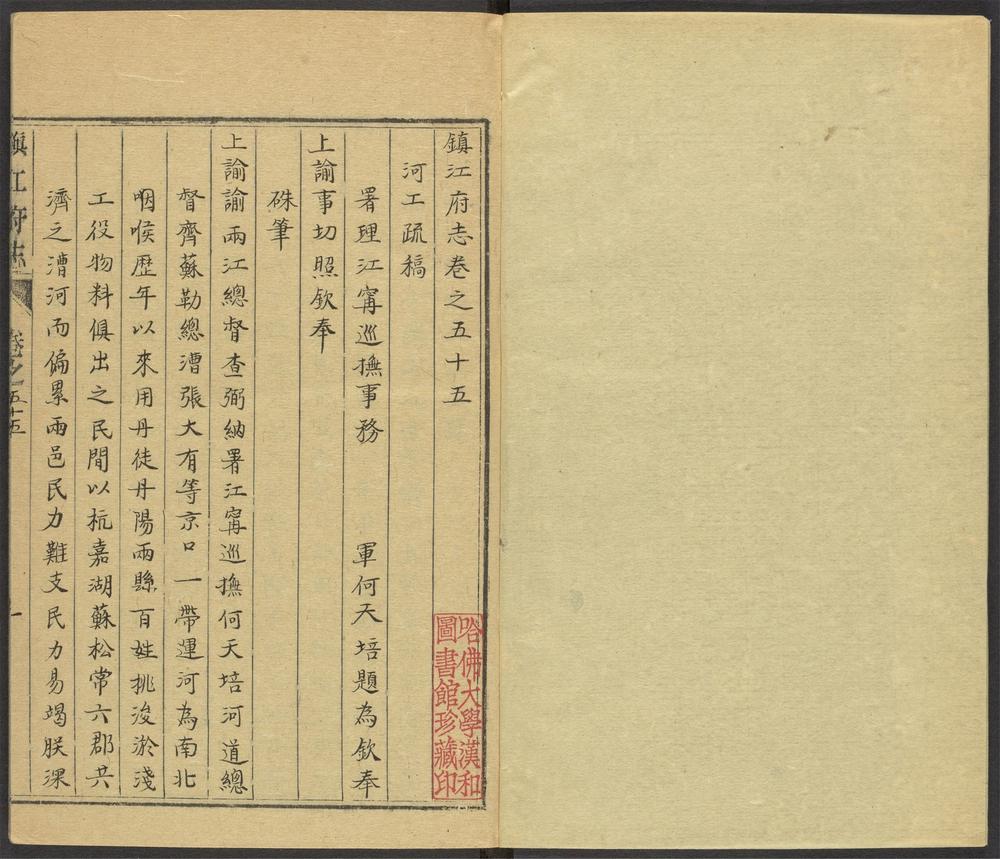 鎮江府志卷之五十五
河工疏稿
署理江寗巡撫事務 軍何天培題為欽奉
上諭事切照欽奉
硃筆
上諭諭兩江總督查弼納署江寗巡撫何天培河道總
督齊蘇勒總漕張大有等京口一帶運河為南北
咽喉歷年以來用丹徒丹陽兩縣百姓挑浚淤淺
工役物料俱出之民間以杭嘉湖蘇松常六郡共
濟之漕河而偏累兩邑民力難支民力易竭朕深
鎮江府志
卷之五十五
一
哈佛大學漢和
圖書館珍藏印